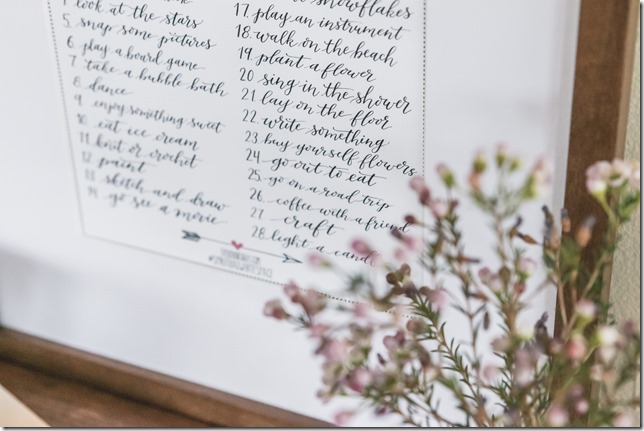 look at the stars
5. snap some pictures
6. play a board game
7. take a bubble bath
8. dance
9. enjoy something sweet
10. eat ice cream
11. knit or crochet
12. paint
13. sketch and draw
14. go see a movie
snowflakes
17. play an instrument
18. walk on the beach
19. plant a flower
20. sing in the shower
21. lay on the floor
22. write something
23. buy yourself flowers
24. go out to eat
25. go on a road trip
26. coffee with a friend
27. craft
28. light a cand